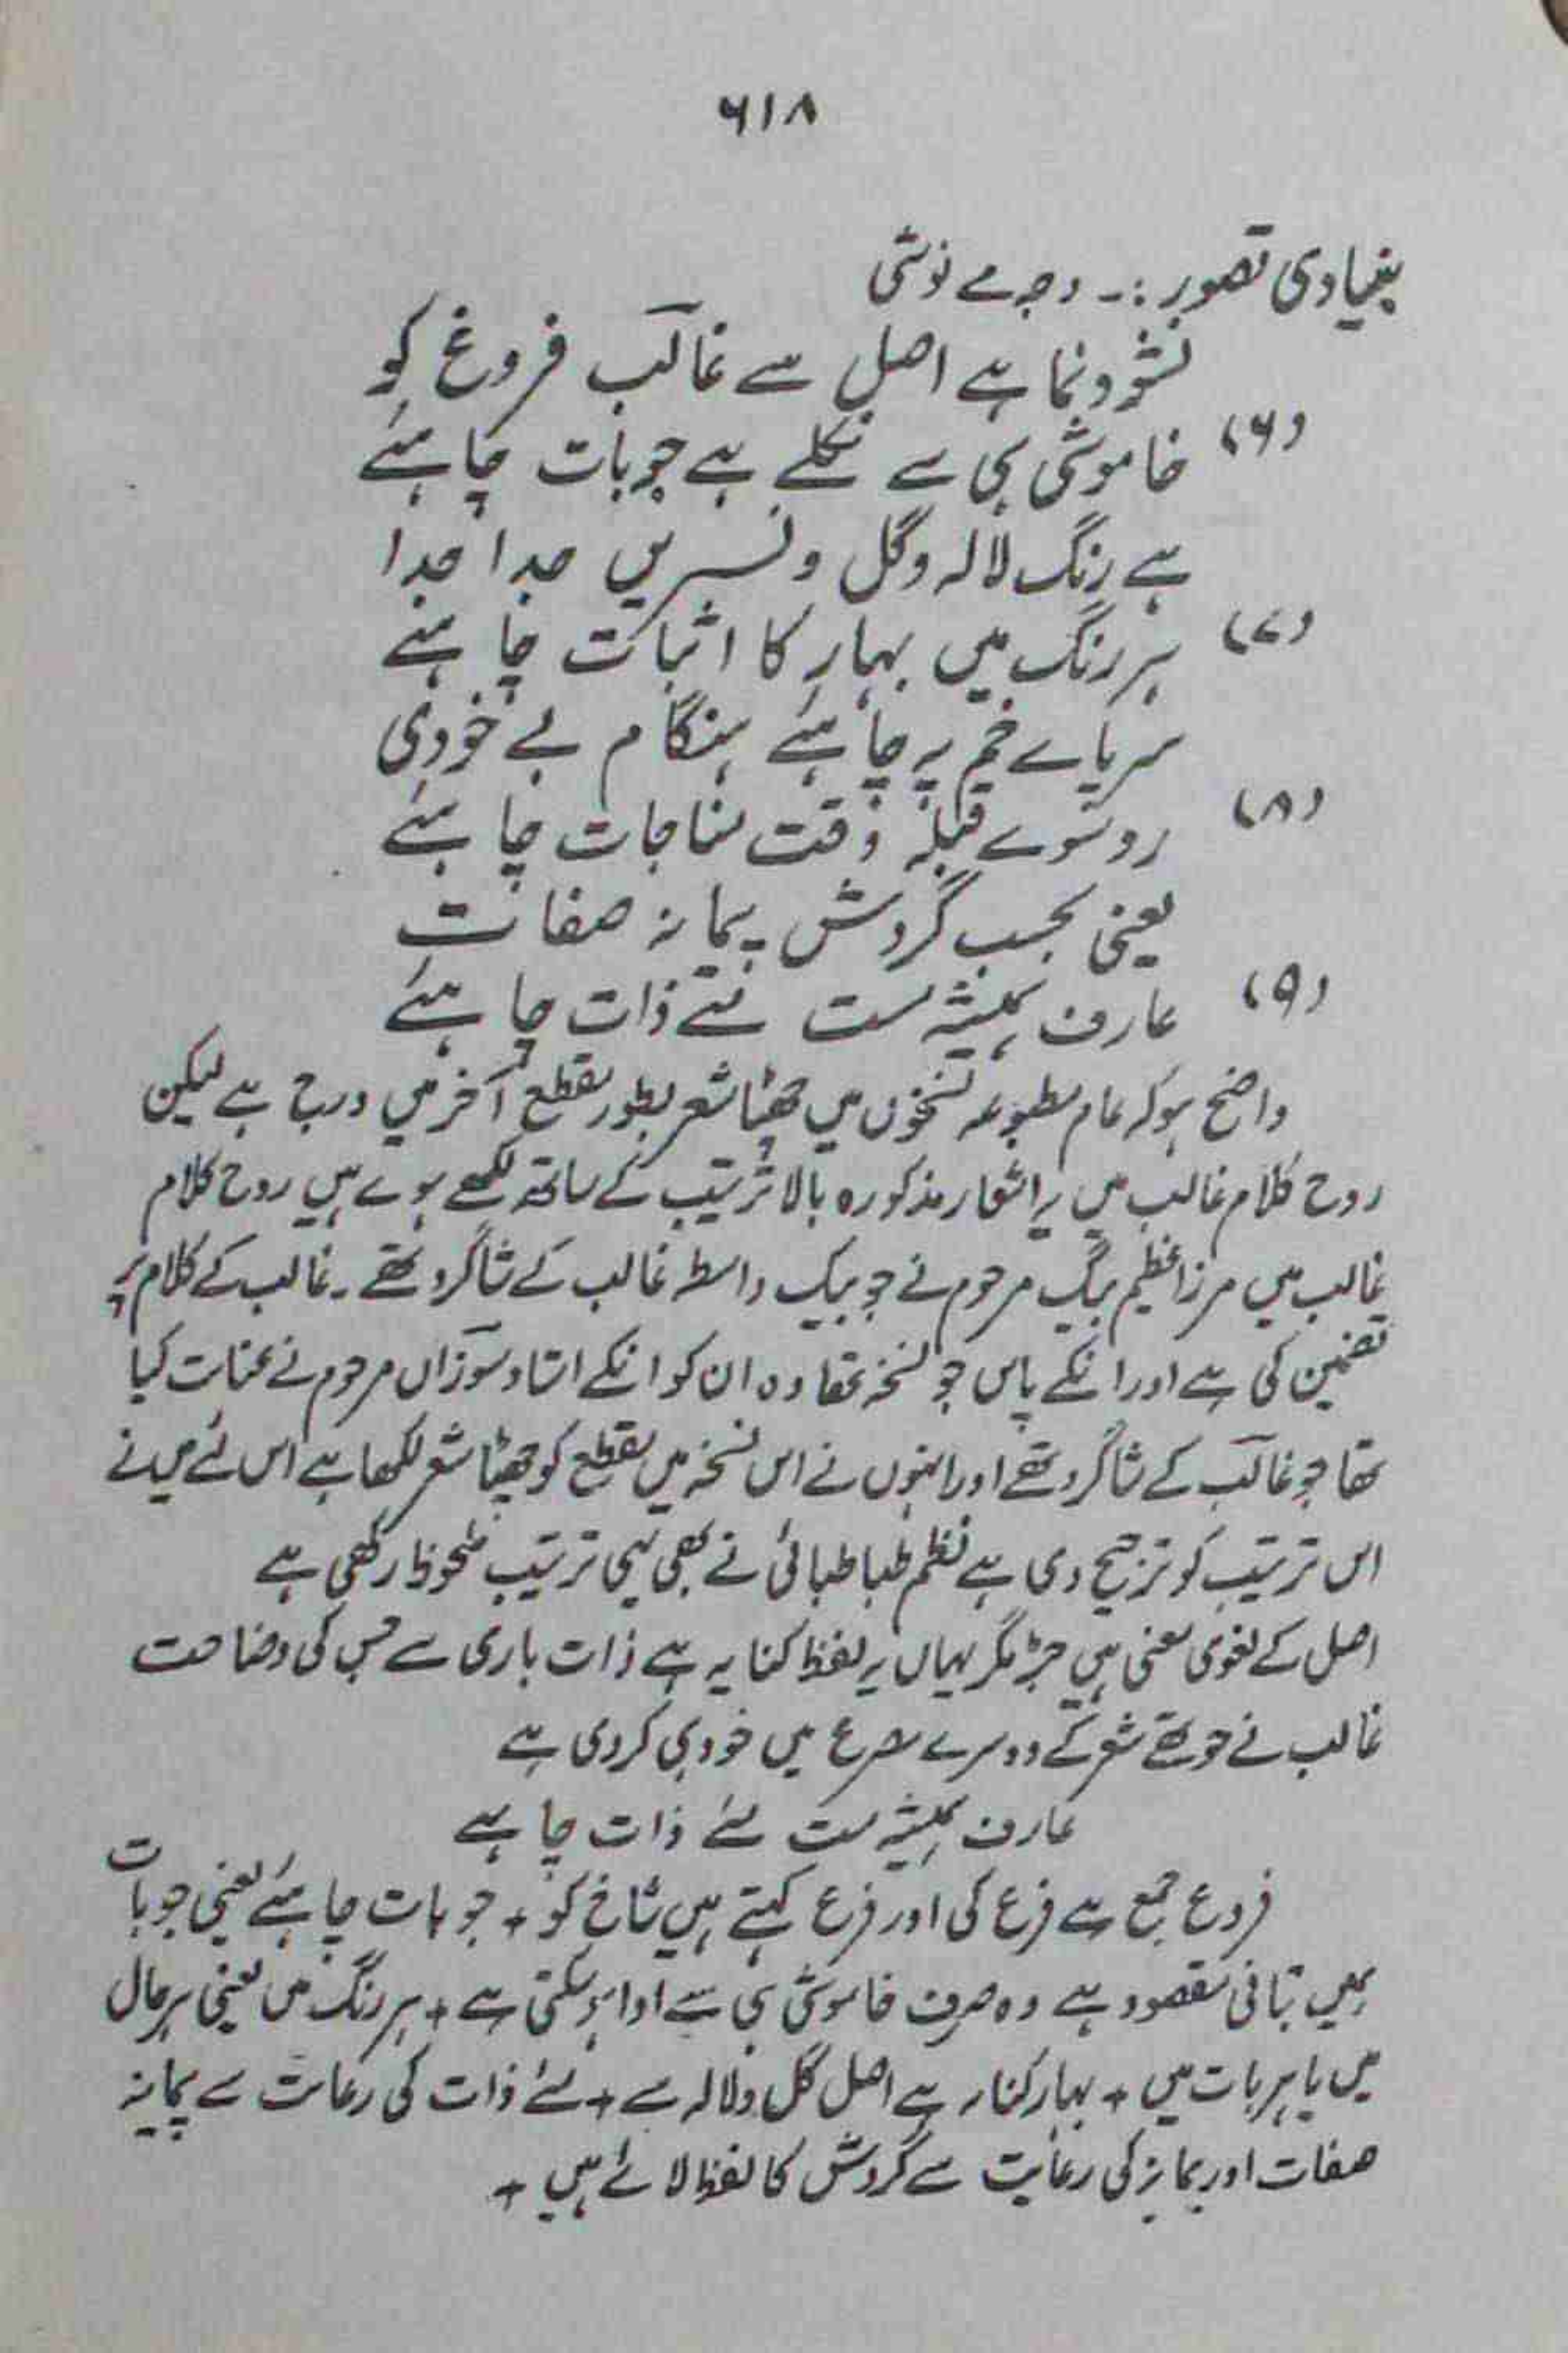 ۶۱۸
بنیادی تصور :۔ وجہ مے نوشی
نشوونما ہے اصل سے غالبؔ فروغ کو
(۶) خاموشی ہی سے نکلے ہے جو بات چاہئے
ہے رنگ لالہ وگل ونسریں جدا جدا
(۷) ہر رنگ میں بہار کا اثبات چاہئے
سر پاے خم پہ چاہئے ہنگام بے خودی
(۸) رو سوے قبلہ وقت مناجات چاہئے
یعنی بحسب گردش پیمانہ صفات
(۹) عارف ہمیشہ مست مئے ذات چاہئے
واضح ہو کہ عام مطبوعہ نسخوں میں چھٹا شعر بطور مقطع آخر میں درج ہے لیکن
روح کلام غالب میں یہ اشعار مذکورہ بالا ترتیب کے ساتھ لکھے ہوے ہیں روح کلام
غالب میں مرزا عظیم بیگ مرحوم نے جو بیک واسطہ غالب کے شاگرد تھے ۔ غالب کے کلام پر
تضمین کی ہے اور انکے پاس جو نسخہ تھا وہ ان کو انکے استاد سوزاں مرحوم نے عنایت کیا
تھا جو غالبؔ کے شاگرد تھے اور انہوں نے اس نسخہ میں مقطع کو چھٹا شعر لکھا ہے اس لئے میں نے
اس ترتیب کو ترجیح دی ہے نظم طباطبائی نے بھی یہی ترتیب ملحوظ رکھی ہے
اصل کے لغوی معنی ہیں جڑ مگر یہاں یہ لفظ کنایہ ہے ذات باری سے جس کی وضاحت
غالب نے چوتھے شعر کے دوسرے مصرع میں خود ہی کردی ہے
عارف ہمیشہ مست مئے ذات چاہے
فروع جمع ہے فرع کی اور فرع کہتے ہیں شاخ کو + جو بات چاہئے یعنی جو بات
ہمیں بتانی مقصود ہے وہ صرف خاموشی ہی سے ادا ہوسکتی ہے + ہر رنگ میں یعنی ہر حال
میں یا ہر بات میں + بہار کنایہ ہے اصل گل ولالہ سے + مئے ذات کی رعایت سے پیمانہ
صفات اور پیمانہ کی رعایت سے گردش کا لفظ لائے ہیں +